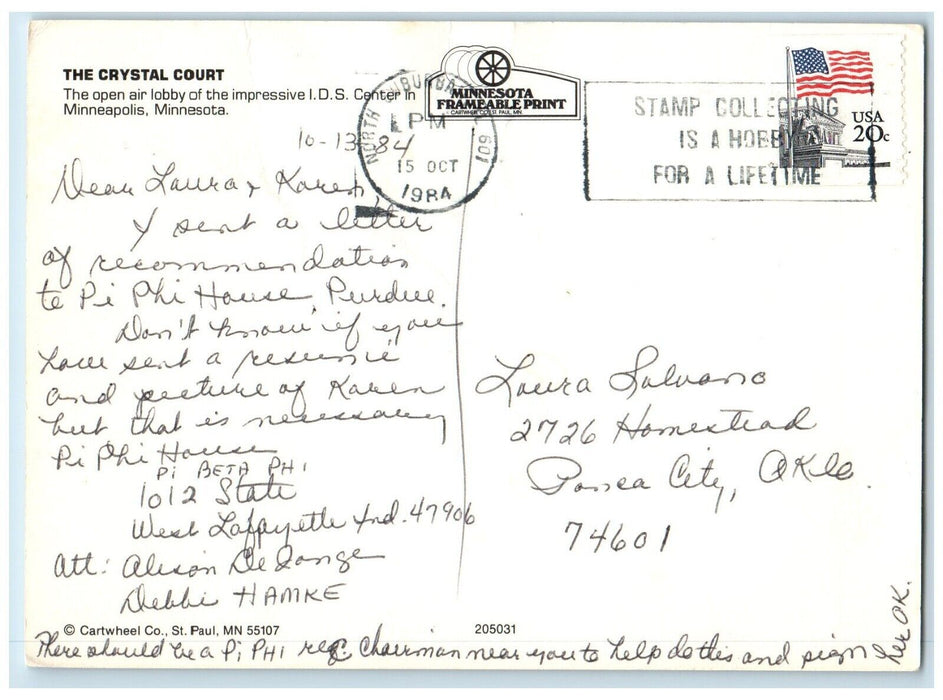 THE CRYSTAL COURT
The open air lobby of the impressive I.D.S. Center in
Minneapolis, Minnesota.
MINNESOTA
FRAMEABLE PRINT
CARTWHEEL CO. ST. PAUL, MN
NORTH SUBURBAN IL 601
PM
15 OCT
1984
STAMP COLLECTING
IS A HOBBY
FOR A LIFETIME
USA
20c
10-13-84
Dear Laura & Karen,
I sent a letter
of recommendation
to Pi Phi House, Purdue.
Don't know if you
have sent a resumé
and picture of Karen
but that is necessary
Pi Phi House
Pi BETA PHI
1012 State
West Laffayette Ind. 47906
Att: Alison DeLonge
Debbi HAMKE
Laura Salvano
2726 Homestead
Ponca City, OKla.
74601
© Cartwheel Co., St. Paul, MN 55107
205031
There should be a Pi PHI rec. Chairman near you to help do this and sign
her OK.